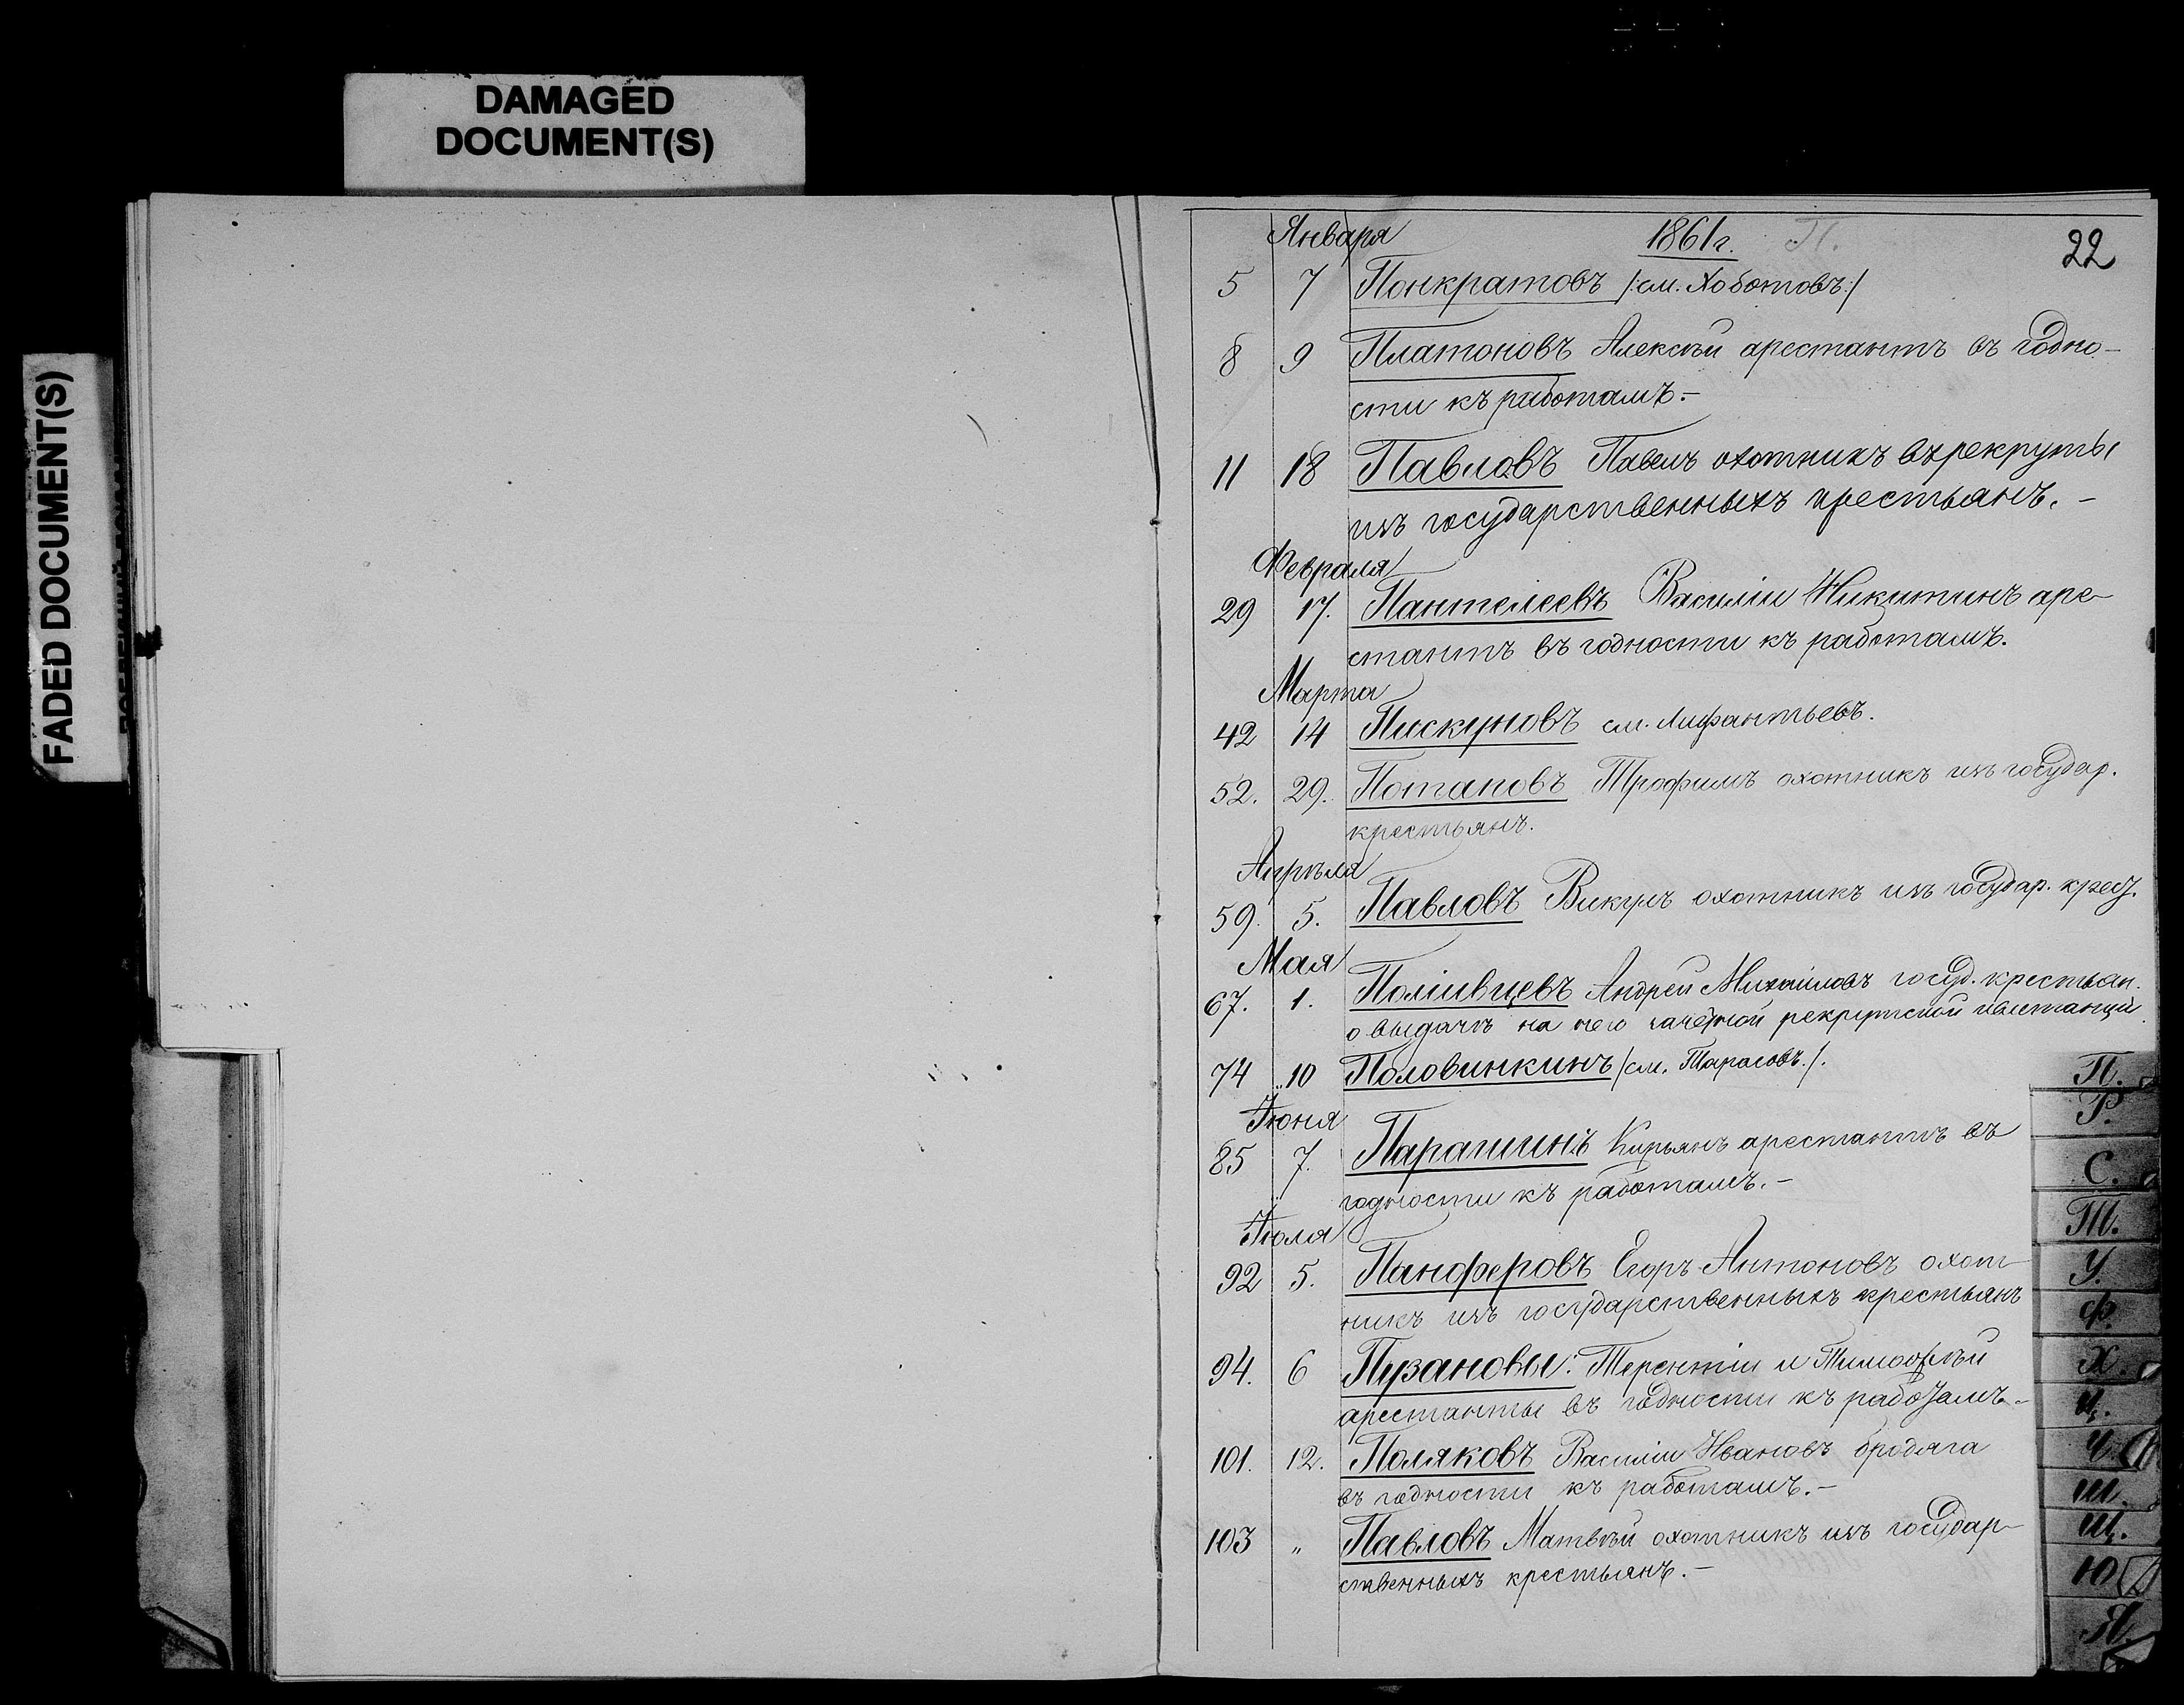 DAMAGED
DOCUMENT(S)
FADED DOCUMENT(S)
Января 1861 г. П. 22
5 7 Понкратовъ /:см. Хоботовъ:/
8 9 Платоновъ Алексѣй арестантъ въ годно-
сти къ работамъ.-
11 18 Павловъ Павелъ охотникъ въ рекруты
изъ государственныхъ крестьянъ.-
Февраля
29 17. Пантелеевъ Василій Никитинъ аре-
стантъ въ годности къ работамъ.
Марта
42 14 Пискуновъ см. Лифантьевъ.
52. 29. Потаповъ Трофимъ охотникъ изъ государ.
крестьянъ.
Апрѣля
59. 5. Павловъ Викулъ охотникъ изъ государ. крест.
Мая
67. 1. Андрей Михайловъ госуд. крестьян.
о выдачѣ на него зачётной рекрутской квитанціи
74 10 Половинкинъ /см. Тарасовъ./.
Іюня
85 7. Парашинъ Кирьянъ арестантъ въ
годности къ работамъ.-
Іюля
92 5. Панферовъ Егоръ Антоновъ охот-
никъ изъ государственныхъ крестьянъ
94. 6 Пузановы: Терентій и Тимофѣй
арестанты въ годности къ работамъ-
101. 12. Поляковъ Василій Ивановъ бродяга
въ годности къ работамъ.-
103 " Павловъ Матвѣй охотникъ изъ государ-
ственныхъ крестьянъ.-
П.
Р.
С.
Т.
У.
Ф.
Х.
Ц.
Ч.
Ш.
Щ.
Ю
Я.